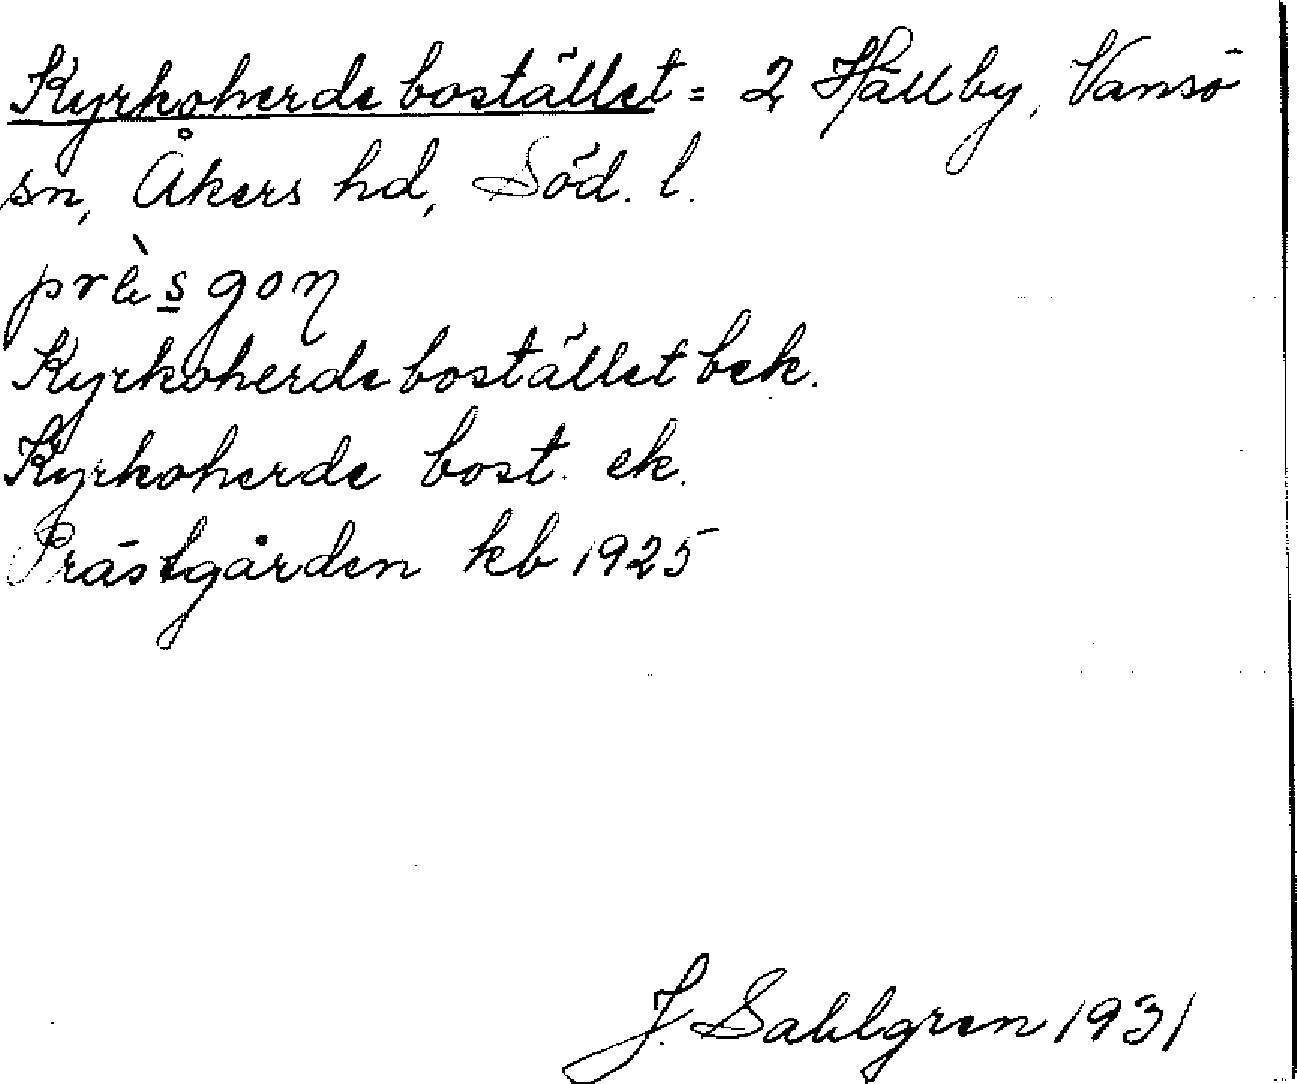 Kyrkoherdebostället = 2 Hällby, Vansö
sn, Åkers hd, Söd. l.
prèsgoŋ
Kyrkoherdebostället bek.
Kyrkoherde bost. ek.
Prästgården kb 1925
J. Sahlgren 1931